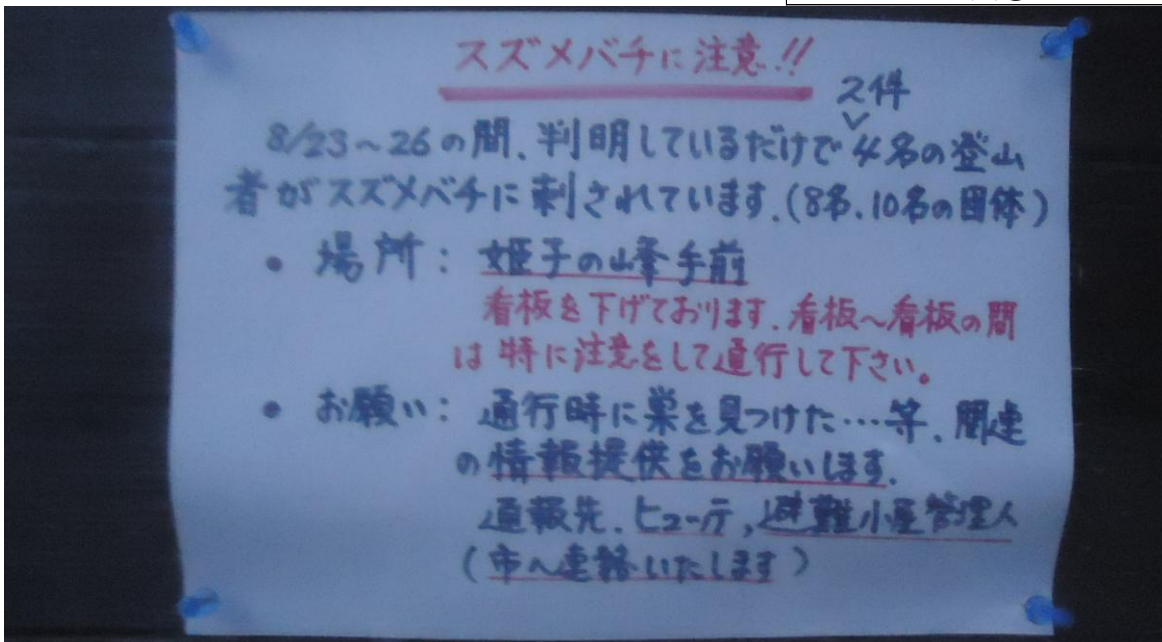 スズメバチに注意!!
2件
8/23~26の間、判明しているだけで4名の登山
者がスズメバチに刺されています.(8名、10名の団体)
• 場所: 姫子の峰手前
看板を下げております.看板~看板の間
は特に注意をして通行して下さい。
• お願い: 通行時に巣を見つけた…等、関連
の情報提供をお願いします.
通報先.ヒュッテ,避難小屋管理人
(市へ連絡いたします)